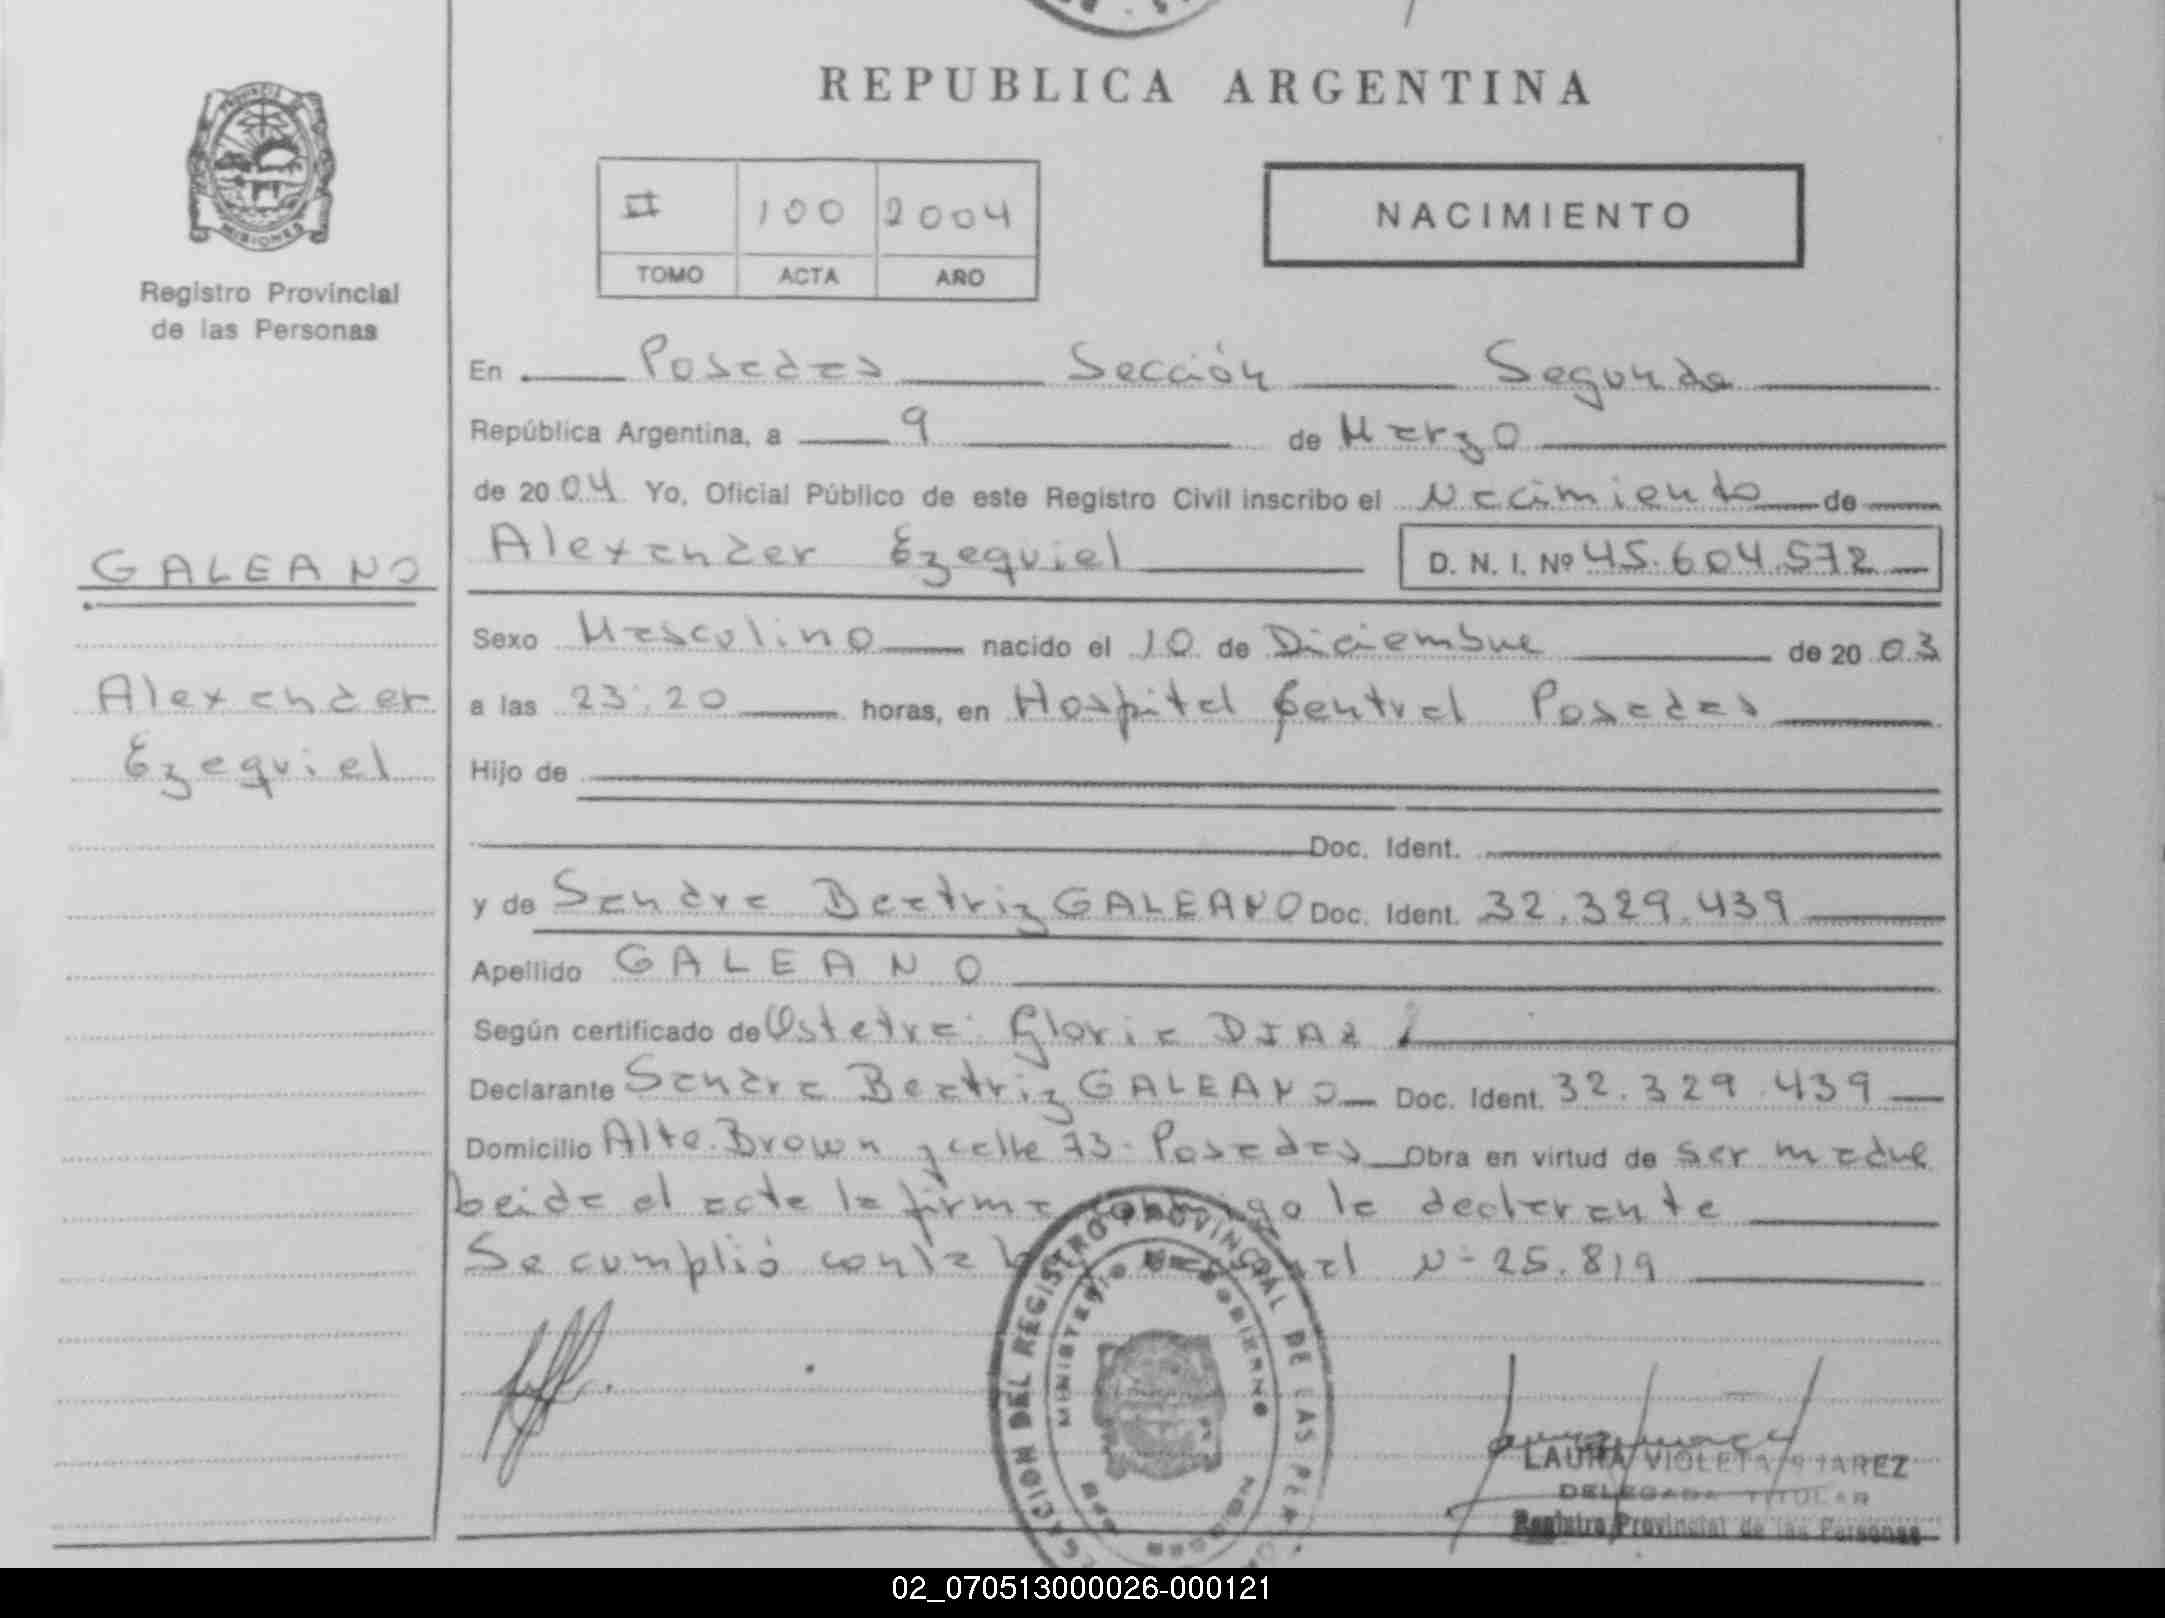 REPUBLICA ARGENTINA
PROVINCIA DE
MISIONES
Registro Provincial
de las Personas
II 100 2004
TOMO ACTA AÑO
NACIMIENTO
En Posadas Sección Segunda
República Argentina, a 9 de Marzo
de 2004 Yo, Oficial Público de este Registro Civil inscribo el Nacimiento de
GALEANO
Alexander Ezequiel D. N. I. Nº 45.604.572
Sexo Masculino nacido el 10 de Diciembre de 2003
Alexander
Ezequiel
a las 23:20 horas, en Hospital Central Posadas
Hijo de
Doc. Ident.
y de Sandra Beatriz GALEANO Doc. Ident. 32.329.439
Apellido GALEANO
Según certificado de Ostetra: Gloria DIAZ
Declarante Sandra Beatriz GALEANO Doc. Ident. 32.329.439
Domicilio Alte. Brown y calle 73 - Posadas Obra en virtud de ser madre
Leida el acta la firma conmigo la declarante
Se cumplió con la N- 25.819
REGISTRO PROVINCIAL DE LAS
MINISTERIO DE GOBIERNO
LAURA VIOLETA
DELEGADA TITULAR
Registro Provincial de las Personas
02_070513000026-000121